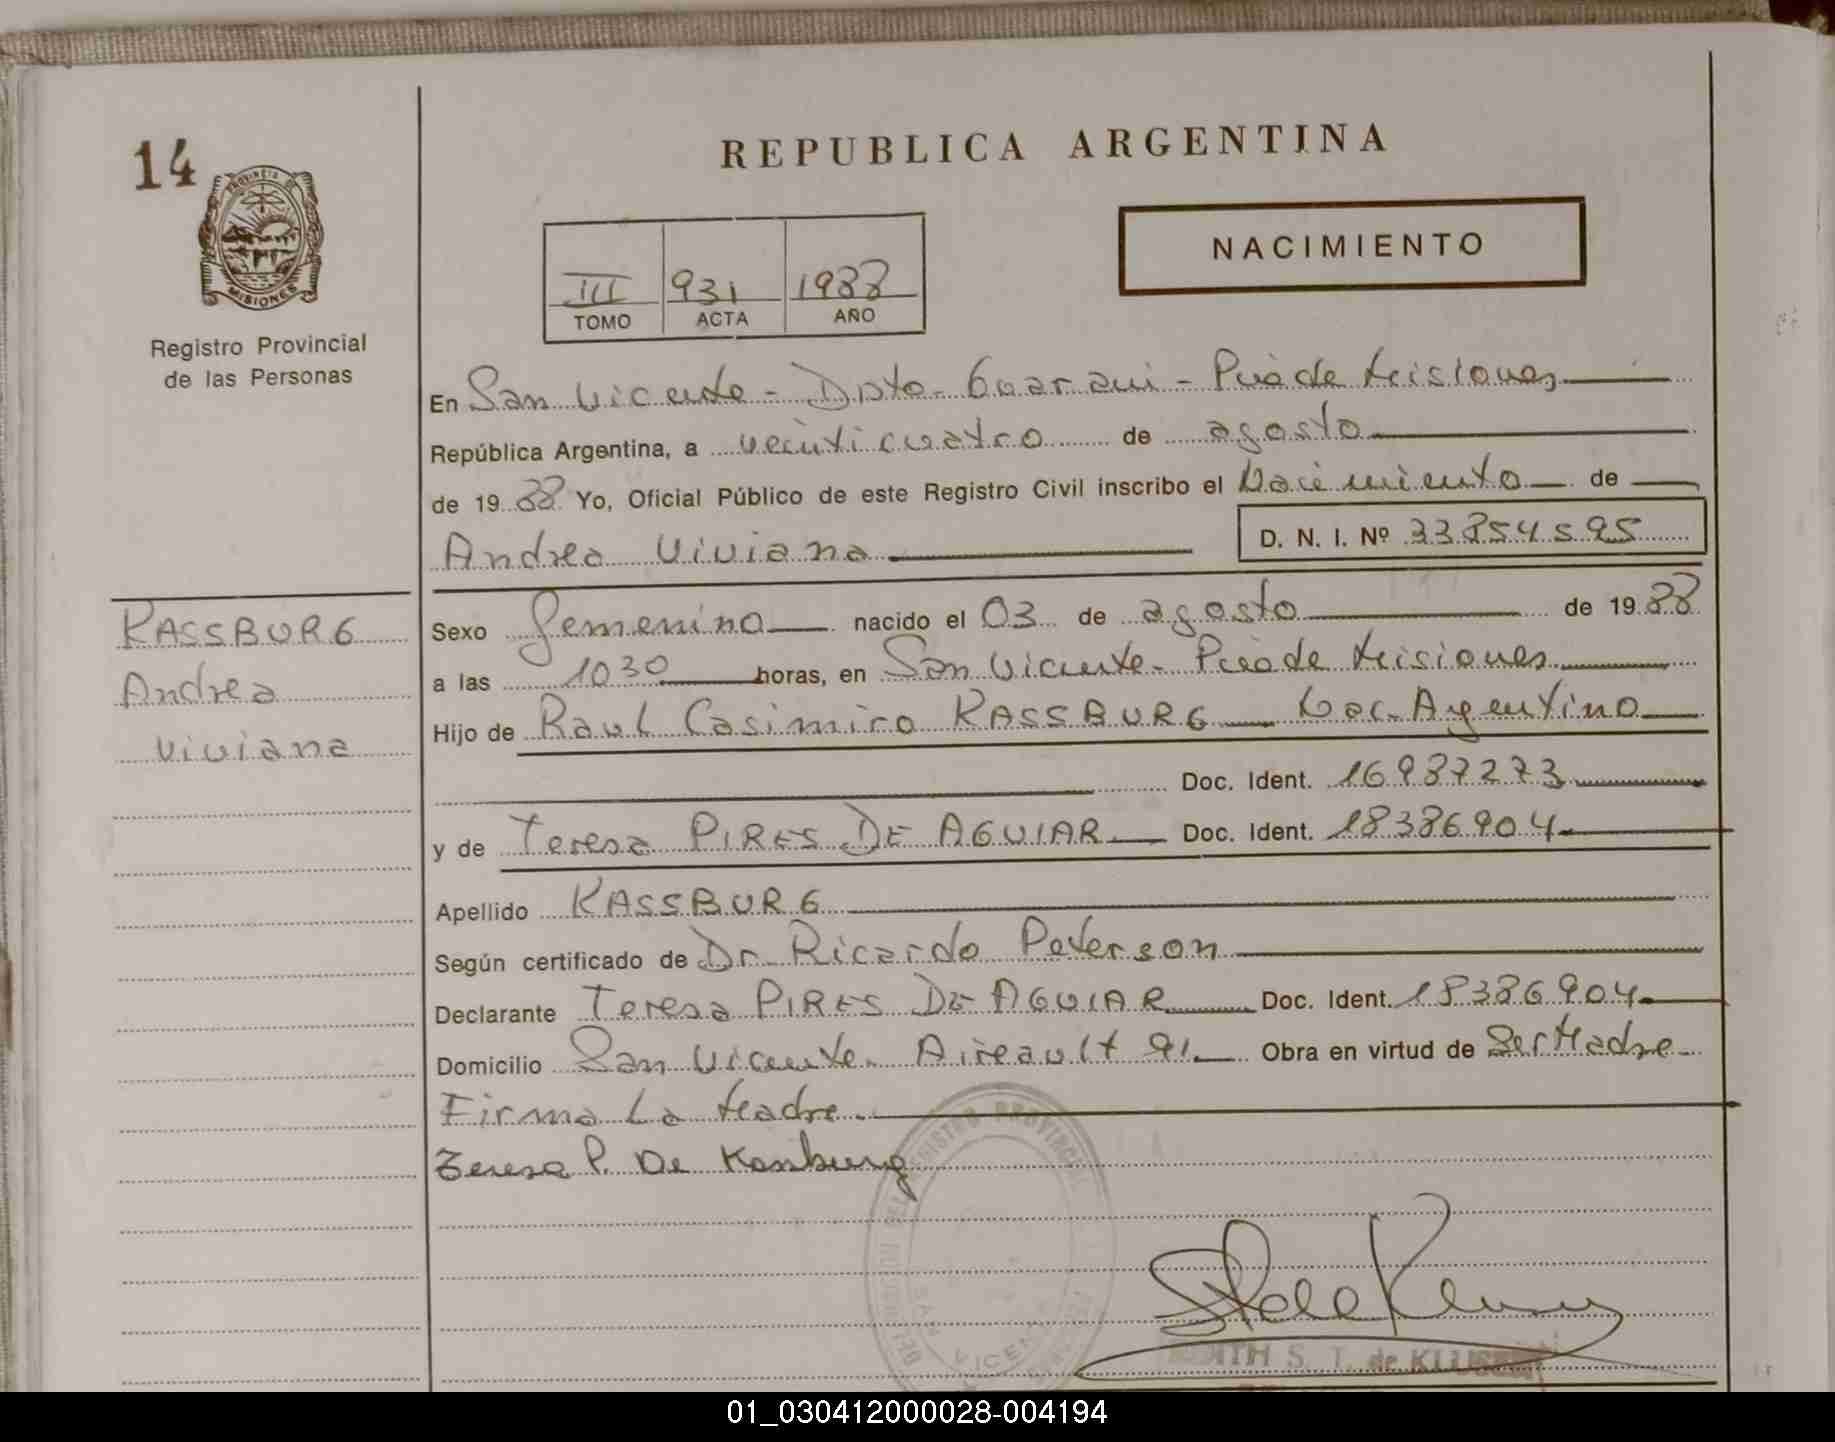 14
PROVINCIA DE
MISIONES
Registro Provincial
de las Personas
REPUBLICA ARGENTINA
NACIMIENTO
III 931 1988
TOMO ACTA AÑO
En San Vicente - Dpto - Guarani - Pcia de Misiones
República Argentina, a veinticuatro de agosto
de 1988 Yo, Oficial Público de este Registro Civil inscribo el Nacimiento de
Andrea Viviana D. N. I. Nº 33.854.595
KASSBURG
Andrea
Viviana
Sexo femenino nacido el 03 de agosto de 1988
a las 1030 horas, en San Vicente - Pcia de Misiones
Hijo de Raul Casimiro KASSBURG Nac. Argentino
Doc. Ident. 16987273
y de Teresa PIRES DE AGUIAR Doc. Ident. 18386904
Apellido KASSBURG
Según certificado de Dr. Ricardo Peterson
Declarante Teresa PIRES DE AGUIAR Doc. Ident. 18386904
Domicilio San Vicente - 91 Obra en virtud de Ser Madre
Firma La Madre.
Teresa P. De Kassburg
REGISTRO PROVINCIAL
SAN VICENTE
S. T. de
01_030412000028-004194